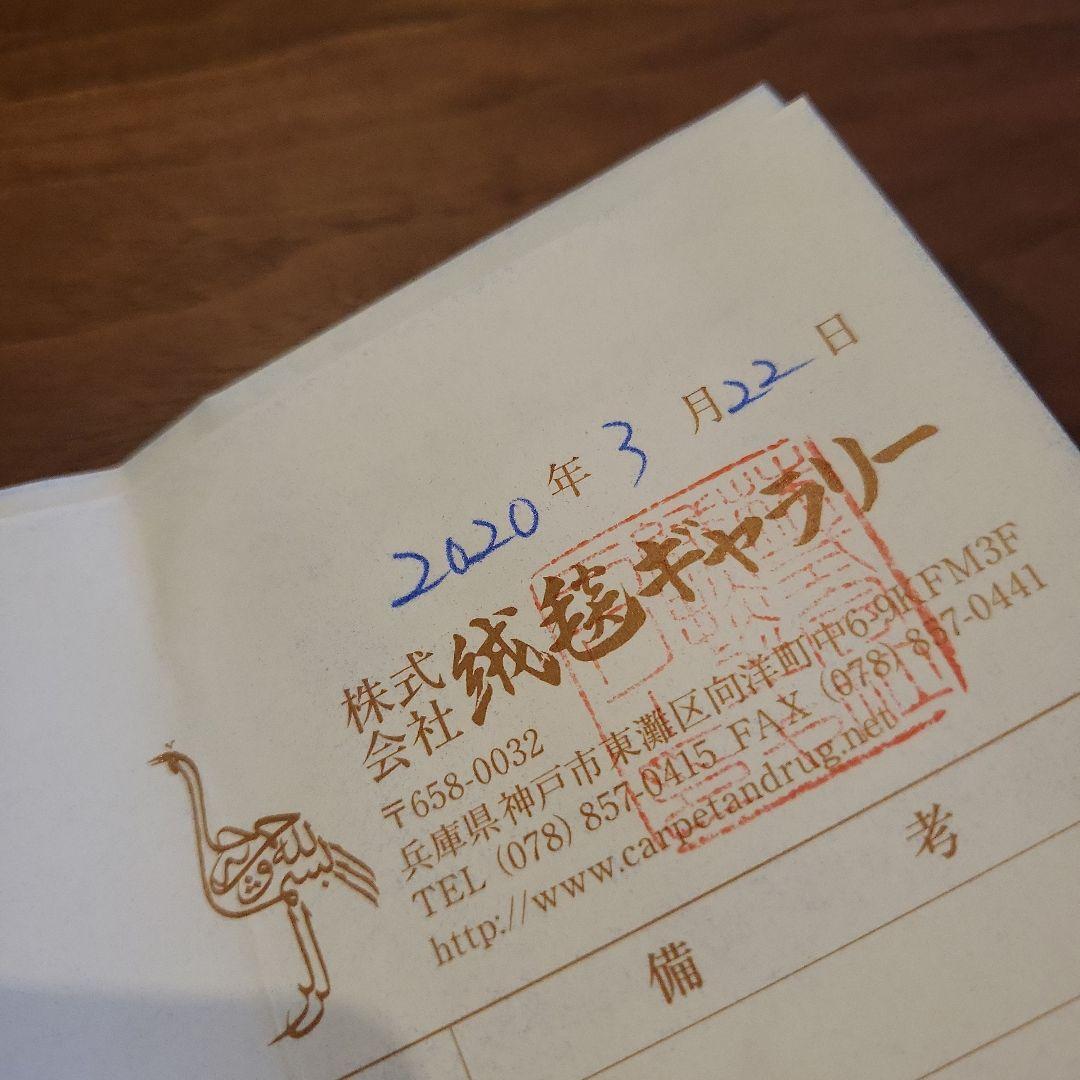 2020年 3月22日
株式会社 絨毯ギャラリー
〒658-0032
兵庫県神戸市東灘区向洋町中6-9KFM3F
TEL (078) 857-0415 FAX (078) 857-0441
http://www.carpetandrug.net
備 考